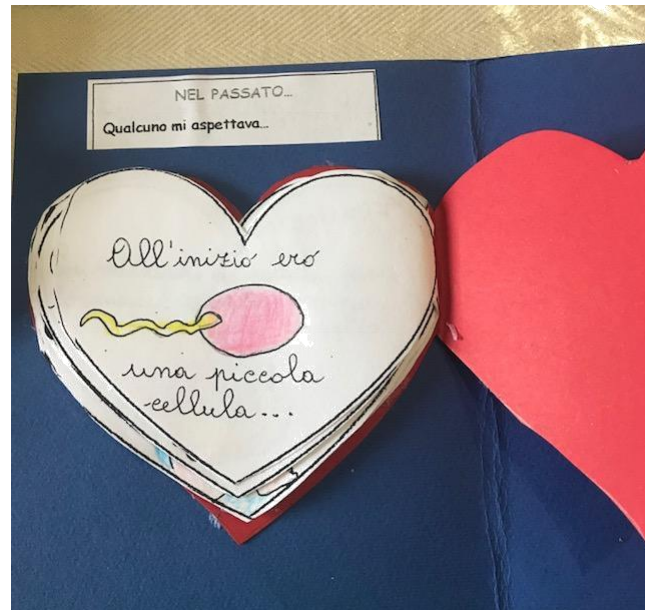 NEL PASSATO...
Qualcuno mi aspettava...
All'inizio ero
una piccola
cellula...